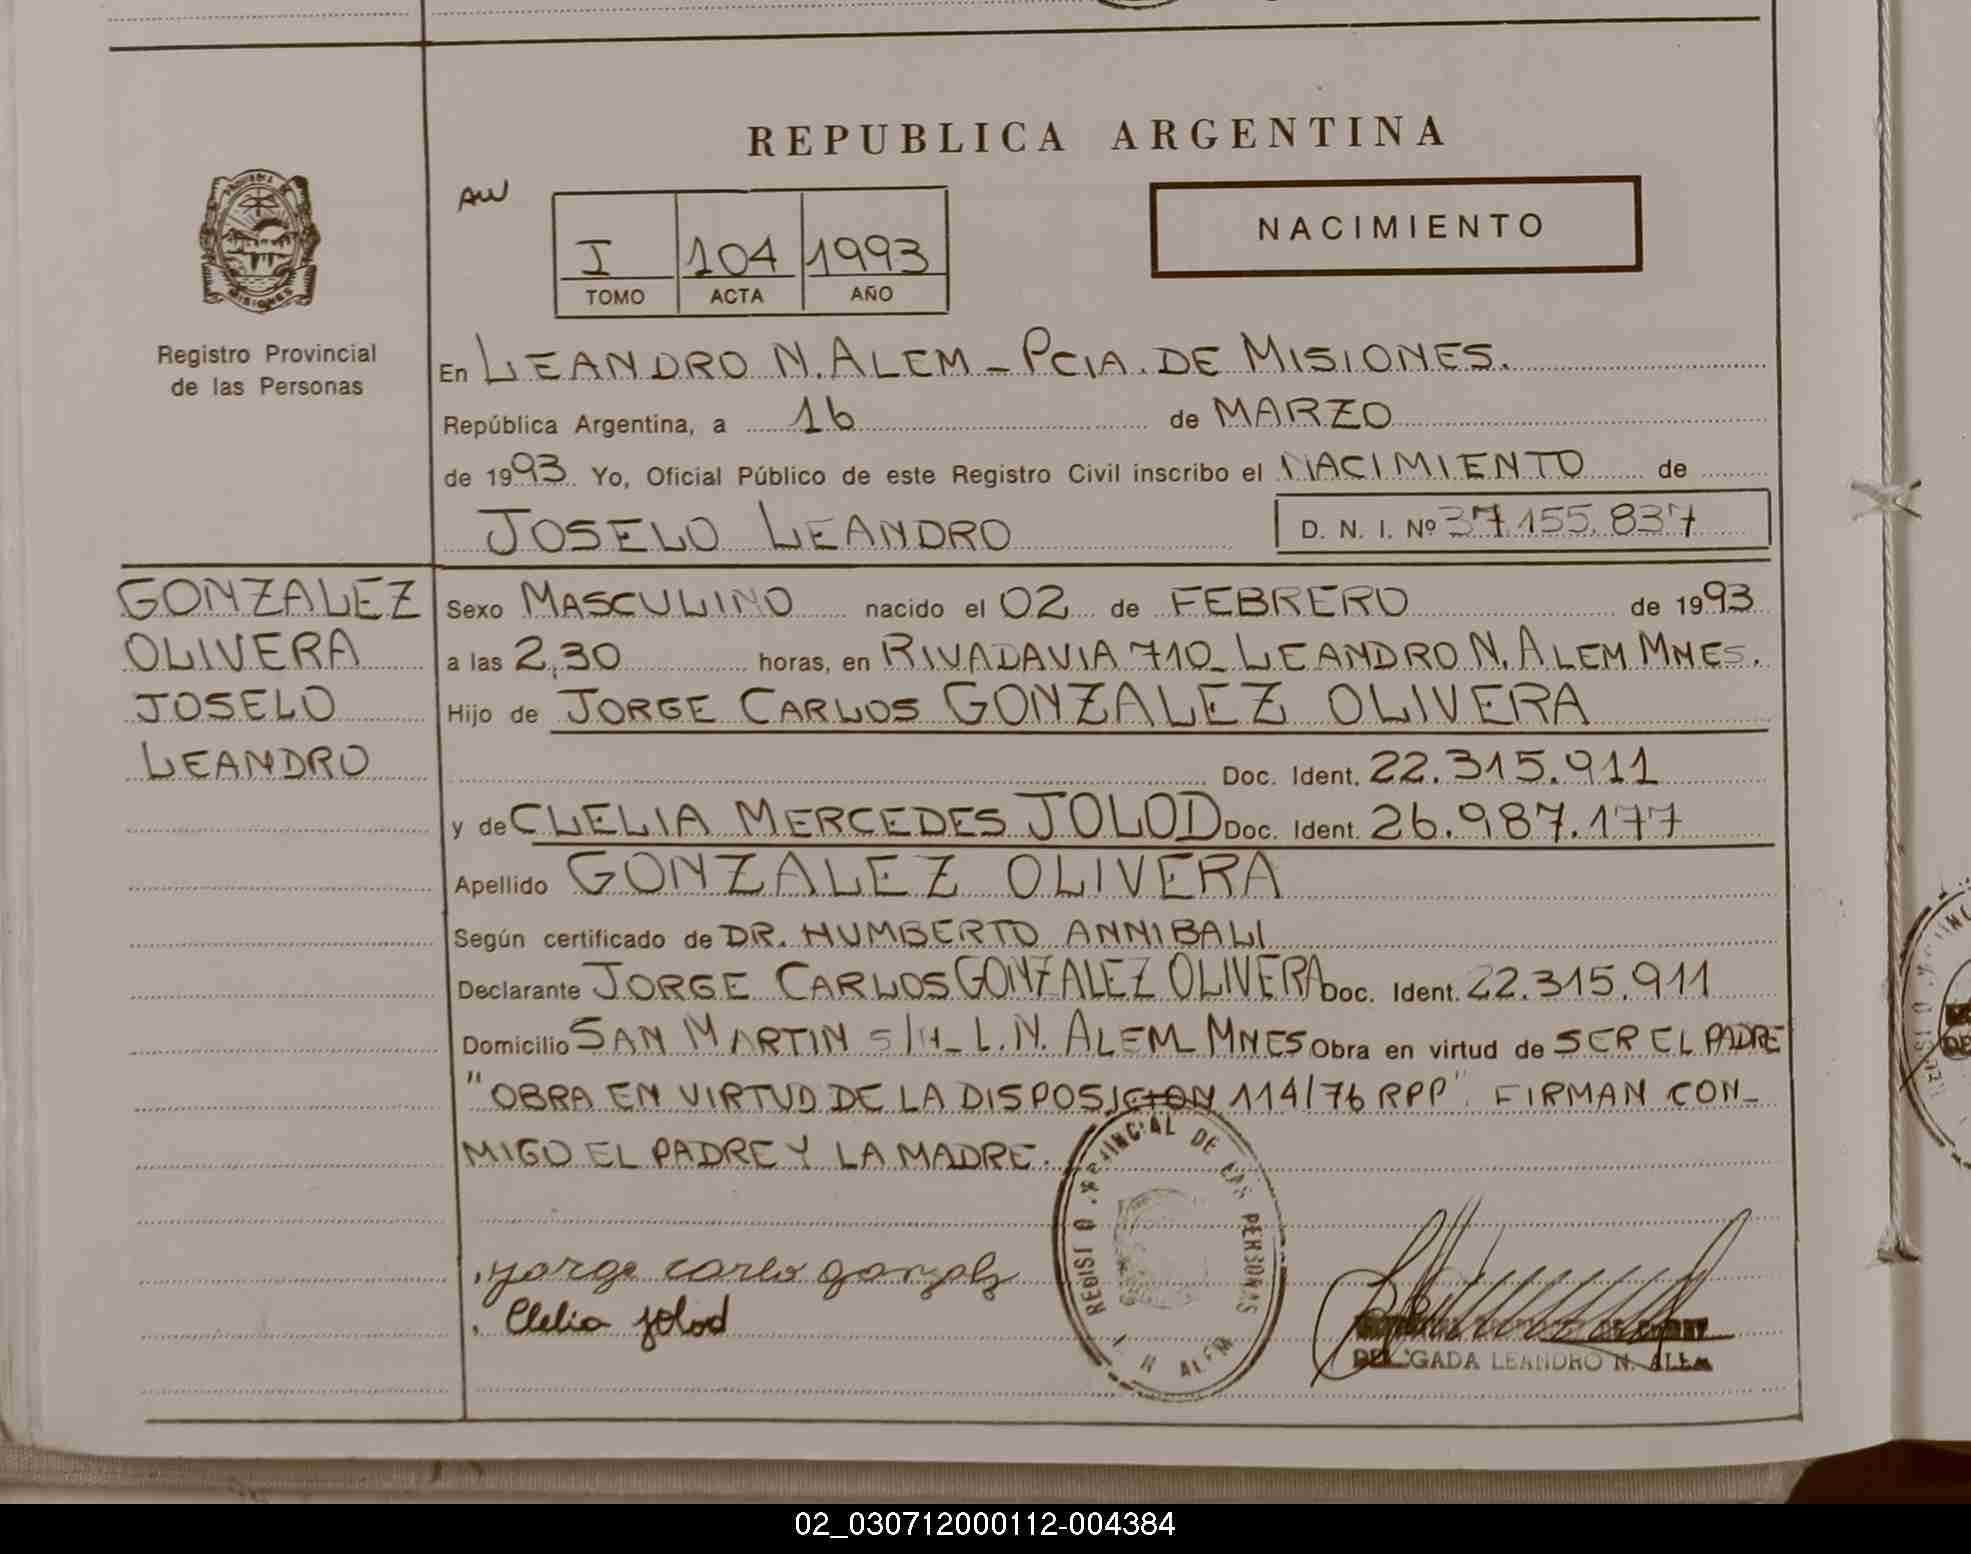 REPUBLICA ARGENTINA
AW
I 104 1993
TOMO ACTA AÑO
NACIMIENTO
PROVINCIA DE
MISIONES
Registro Provincial
de las Personas
En LEANDRO N. ALEM - PCIA. DE MISIONES.
República Argentina, a 16 de MARZO
de 1993 Yo, Oficial Público de este Registro Civil inscribo el NACIMIENTO de
JOSELO LEANDRO D. N. I. Nº 37.155.837
GONZALEZ
OLIVERA
JOSELO
LEANDRO
Sexo MASCULINO nacido el 02 de FEBRERO de 1993
a las 2,30 horas, en RIVADAVIA 710_ LEANDRO N. ALEM MNES.
Hijo de JORGE CARLOS GONZALEZ OLIVERA
Doc. Ident. 22.315.911
y de CLELIA MERCEDES JOLOD Doc. Ident. 26.987.177
Apellido GONZALEZ OLIVERA
Según certificado de DR. HUMBERTO ANNIBALI
Declarante JORGE CARLOS GONZALEZ OLIVERA Doc. Ident. 22.315.911
Domicilio SAN MARTIN S/N_ L.N. ALEM_ MNES Obra en virtud de SER EL PADRE
"OBRA EN VIRTUD DE LA DISPOSICION 114/76 RPP" FIRMAN CON-
MIGO EL PADRE Y LA MADRE.
PROVINCIAL DE LAS PERSONAS
N ALEM
jorge carlo gonzalz
Clelia Jolod
DELEGADA LEANDRO N. ALEM
02_030712000112-004384